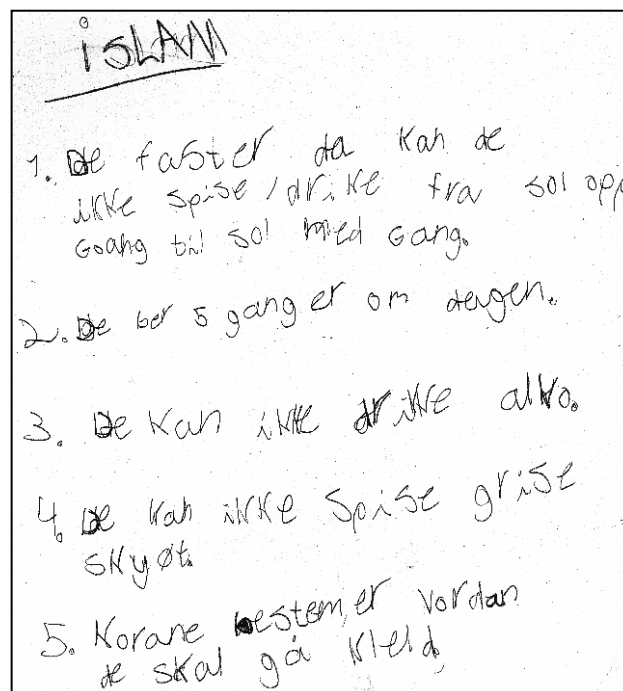 iSLAM
1. De faster da kan de
ikke spise/drike fra sol opp
goang til sol med gang.
2. De ber 5 gang er om dagen.
3. De kan ikke drikke alko.
4. De kan ikke spise grise
skyøt.
5. Korane bestem,er vordan
de skal gå kleld